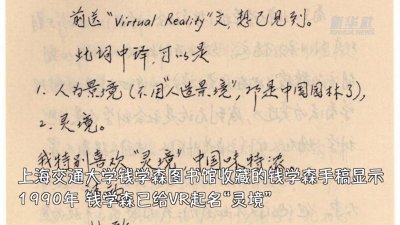 新华社
前送“Virtual Reality”文，想已见到。
此词中译，可以是
1. 人为景境（不用“人造景境”，那是中国园林了），
2. 灵境。
我特别喜欢“灵境”，中国味特浓
上海交通大学钱学森图书馆收藏的钱学森手稿显示
1990年 钱学森已给VR起名“灵境”